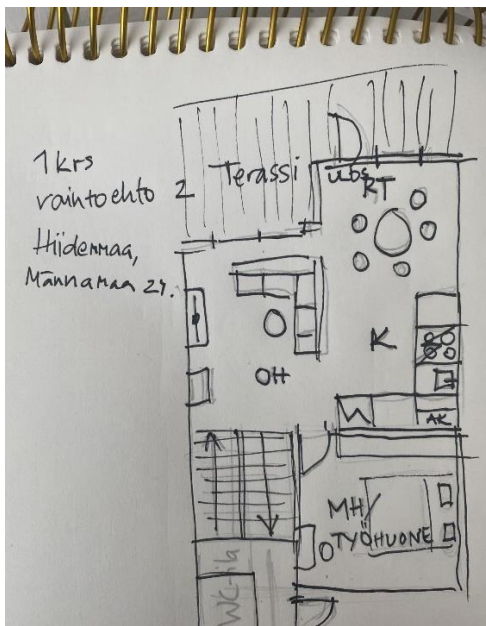 1 krs
vaihtoehto 2
Hiidenmaa,
Männamaa 24.
Terassi
ubs
RT
K
OH
AK
MH/
TYÖHUONE
WC-tila